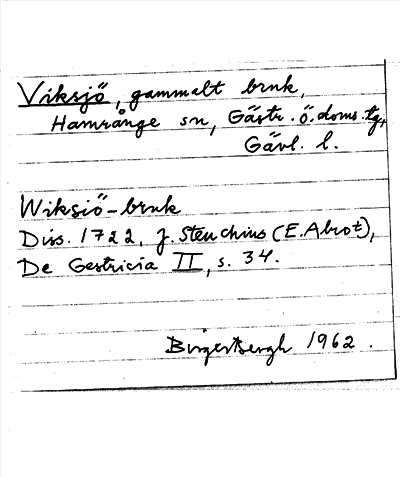 Viksjö, gammalt bruk,
Hamrånge sn, Gästr. ö. doms. tg,
Gävl. l.
Wiksiö-bruk
Diss. 1722, J. Steuchius (E. Abrot),
De Gestricia II, s. 34.
Birger Bergh 1962.